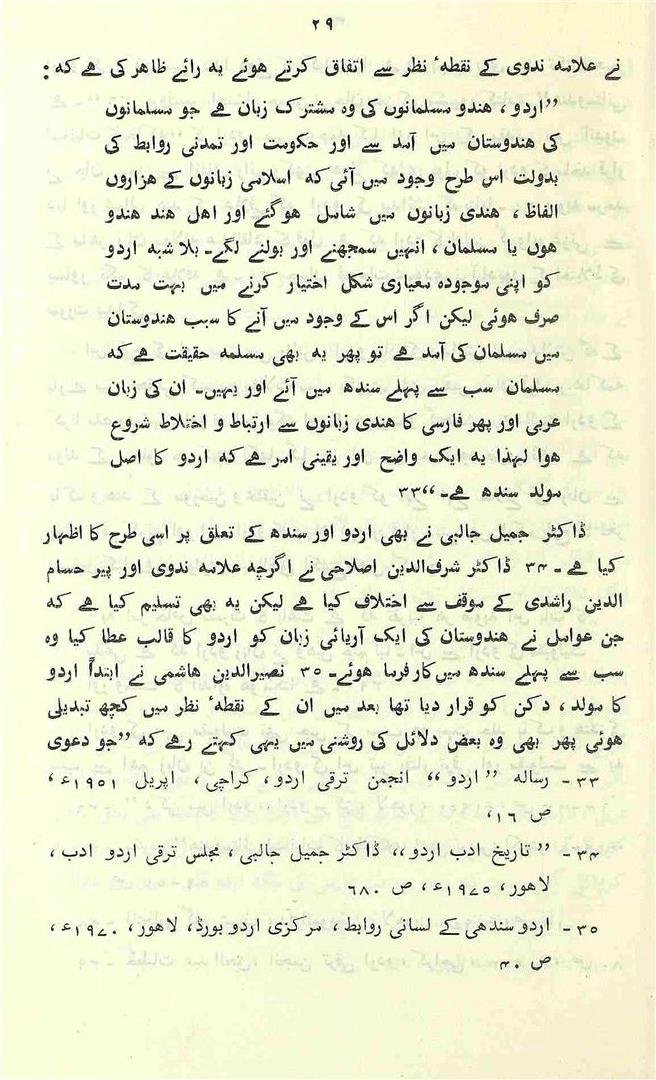 ۲۹
نے علامہ ندوی کے نقطۂ نظر سے اتفاق کرتے ہوئے یہ رائے ظاہر کی ہے کہ :
”اردو ، ہندو مسلمانوں کی وہ مشترک زبان ہے جو مسلمانوں
کی ہندوستان میں آمد سے اور حکومت اور تمدنی روابط کی
بدولت اس طرح وجود میں آئی کہ اسلامی زبانوں کے ہزاروں
الفاظ ، ہندی زبانوں میں شامل ہوگئے اور اہل ہند ہندو
ہوں یا مسلمان ، انہیں سمجھنے اور بولنے لگے۔ بلا شبہ اردو
کو اپنی موجودہ معیاری شکل اختیار کرنے میں بہت مدت
صرف ہوئی لیکن اگر اس کے وجود میں آنے کا سبب ہندوستان
میں مسلمان کی آمد ہے تو پھر یہ بھی مسلمہ حقیقت ہے کہ
مسلمان سب سے پہلے سندھ میں آئے اور یہیں۔ ان کی زبان
عربی اور پھر فارسی کا ہندی زبانوں سے ارتباط و اختلاط شروع
ہوا لہذا یہ ایک واضح اور یقینی امر ہے کہ اردو کا اصل
مولد سندھ ہے۔“۳۳
ڈاکٹر جمیل جالبی نے بھی اردو اور سندھ کے تعلق پر اسی طرح کا اظہار
کیا ہے ۔ ۳۴ ڈاکٹر شرف الدین اصلاحی نے اگرچہ علامہ ندوی اور پیر حسام
الدین راشدی کے موقف سے اختلاف کیا ہے لیکن یہ بھی تسلیم کیا ہے کہ
جن عوامل نے ہندوستان کی ایک آریائی زبان کو اردو کا قالب عطا کیا وہ
سب سے پہلے سندھ میں کار فرما ہوئے۔ ۳۵ نصیرالدین ہاشمی نے ابتداً اردو
کا مولد ، دکن کو قرار دیا تھا بعد میں ان کے نقطۂ نظر میں کچھ تبدیلی
ہوئی پھر بھی وہ بعض دلائل کی روشنی میں یہی کہتے رہے کہ ”جو دعوی
۳۳ ۔ رسالہ ”اردو“ انجمن ترقی اردو ، کراچی ، اپریل ۱۹۵۱ء ،
ص ۱۶ ،
۳۴ ۔ ”تاریخ ادب اردو“ ڈاکٹر جمیل جالبی ، مجلس ترقی اردو ادب ،
لاہور ، ۱۹۷۵ء ، ص ۶۸۰
۳۵ ۔ اردو سندھی کے لسانی روابط ، مرکزی اردو بورڈ ، لاہور ، ۱۹۷۰ء ،
ص ۴۰